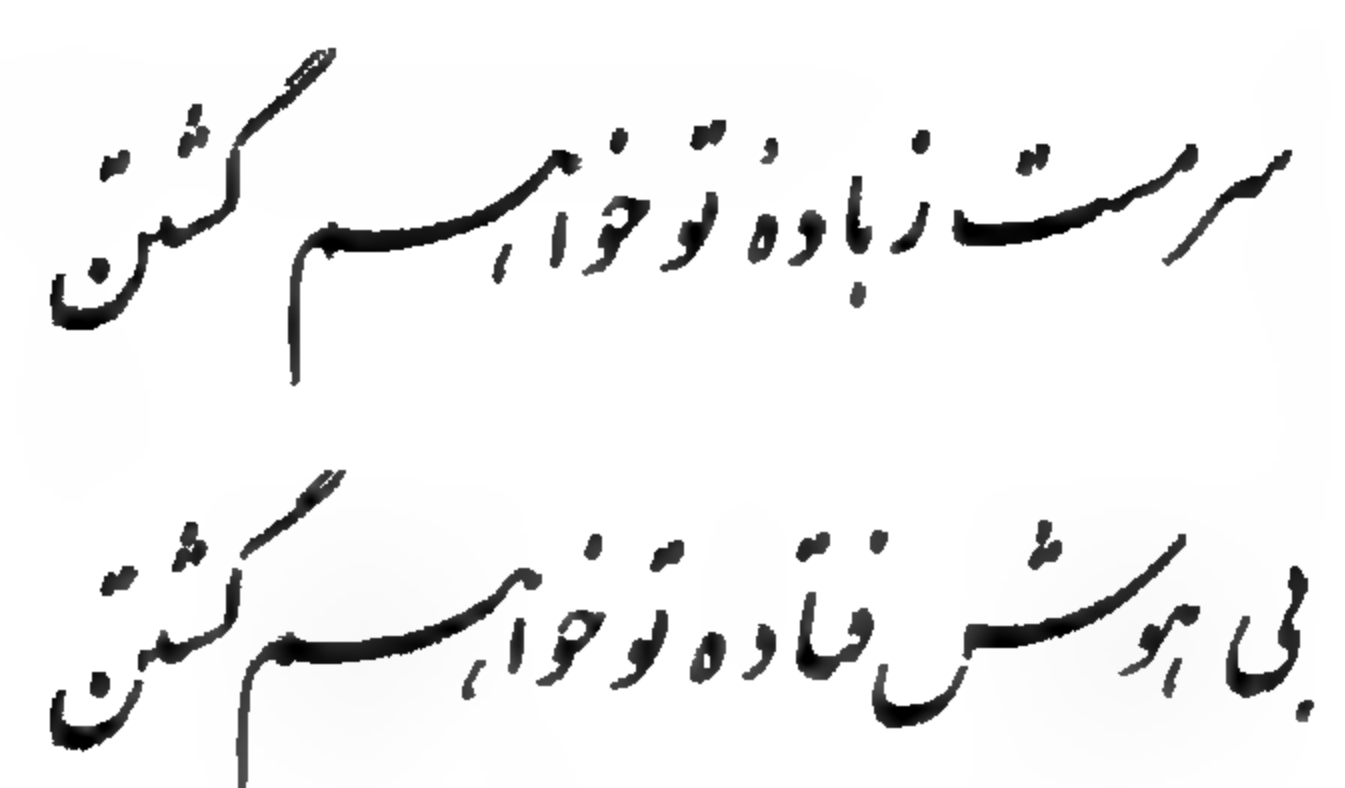 سرمست ز بادهٔ تو خواهم گشتن
بی هوش فتاده تو خواهم گشتن